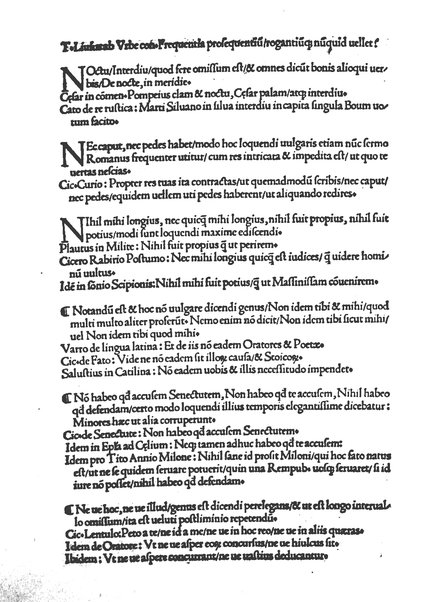 T. Liuius ab Vrbe cōd. Frequentia prosequentiū/rogantiūq; nūquid uellet?
NOctu/Interdiu/quod fere omissum est/& omnes dicūt bonis alioqui uer-
bis/De nocte, in meridie.
Cęsar in cōmen. Pompeius clam & noctu, Cęsar palam/atq; interdiu.
Cato de re rustica: Marti Siluano in silua interdiu in capita singula Boum uo-
tum facito.
NEc caput, nec pedes habet/modo hoc loquendi uulgaris etiam nūc sermo
Romanus frequenter utitur/ cum res intricata & impedita est/ ut quo te
uertas nescias.
Cic. Curio: Propter res tuas ita contractas/ut quemadmodū scribis/nec caput/
nec pedes/equidem uellem uti pedes haberent/ut aliquando redires.
NIhil mihi longius, nec quicq̄ mihi longius, nihil fuit propius, nihil fuit
potius/modi sunt loquendi maxime ediscendi.
Plautus in Milite: Nihil fuit propius q̄ ut perirem.
Cicero Rabirio Postumo: Nec mihi longius quicq̄ est iudices/ q̄ uidere homi-
nū uultus.
Idē in sōnio Scipionis: Nihil mihi fuit potius/q̄ ut Massinissam cōuenirem.
¶ Notandū est & hoc nō uulgare dicendi genus/Non idem tibi & mihi/quod
multi multo aliter proferūt. Nemo enim nō dicit/Non idem tibi sicut mihi/
uel Non idem tibi quod mihi.
Varro de lingua latina: Et de iis nō eadem Oratores & Poetæ.
Cic. de Fato: Vide ne nō eadem sit illoꝝ causa/& Stoicoꝝ.
Salustius in Catilina: Nō eadem uobis & illis necessitudo impendet.
¶ Nō habeo qd accusem Senectutem, Non habeo qd te accusem, Nihil habeo
qd defendam/certo modo loquendi illius temporis elegantissime dicebatur:
Minores hæc ut alia corruperunt.
Cic. de Senectute: Non habeo qd accusem Senectutem.
Idem in Epła ad Cęlium: Neq; tamen adhuc habeo qd te accusem:
Idem pro Tito Annio Milone: Nihil sane id prosit Miloni/qui hoc fato natus
est/ut ne se quidem seruare potuerit/quin una Rempub. uosq; seruaret/si id
iure nō posset/nihil habeo qd defendam.
¶ Ne ue hoc, ne ue illud/genus est dicendi perelegans/& ut est longo interual-
lo omissum/ita est ueluti postliminio repetendū.
Cic. Lentulo: Peto a te/ne id a me/ne ue in hoc reo/ne ue in aliis quæras.
Idem de Oratore: Vt ne ue asper eoꝝ concursus/ne ue hiulcus sit.
Ibidem: Vt ne ue aspere concurrant/ne ue uastius deducantur.